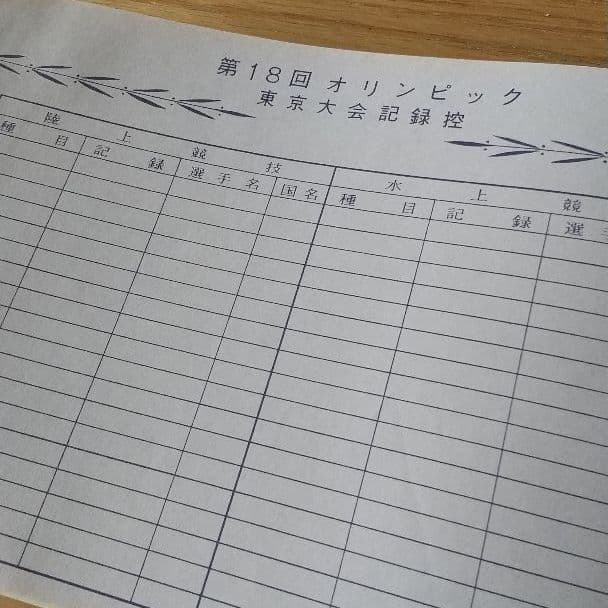 第18回 オリンピック
東京大会記録控
陸上競技 水上競
種目 記録 選手名 国名 種目 記録 選手